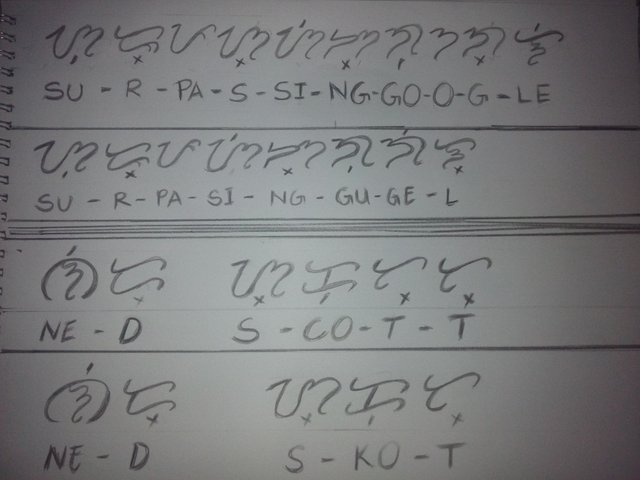 ᜐᜓᜇ᜔ᜉᜐ᜔ᜐᜒᜅ᜔ᜄᜓᜂᜄ᜔ᜎᜒ
SU - R - PA - S - SI - NG - GO - O - G - LE
ᜐᜓᜇ᜔ᜉᜐᜒᜅ᜔ᜄᜓᜄᜒᜎ᜔
SU - R - PA - SI - NG - GU - GE - L
ᜈᜒᜇ᜔ ᜐ᜔ᜃᜓᜆ᜔ᜆ᜔
NE - D S - CO - T - T
ᜈᜒᜇ᜔ ᜐ᜔ᜃᜓᜆ᜔
NE - D S - KO - T